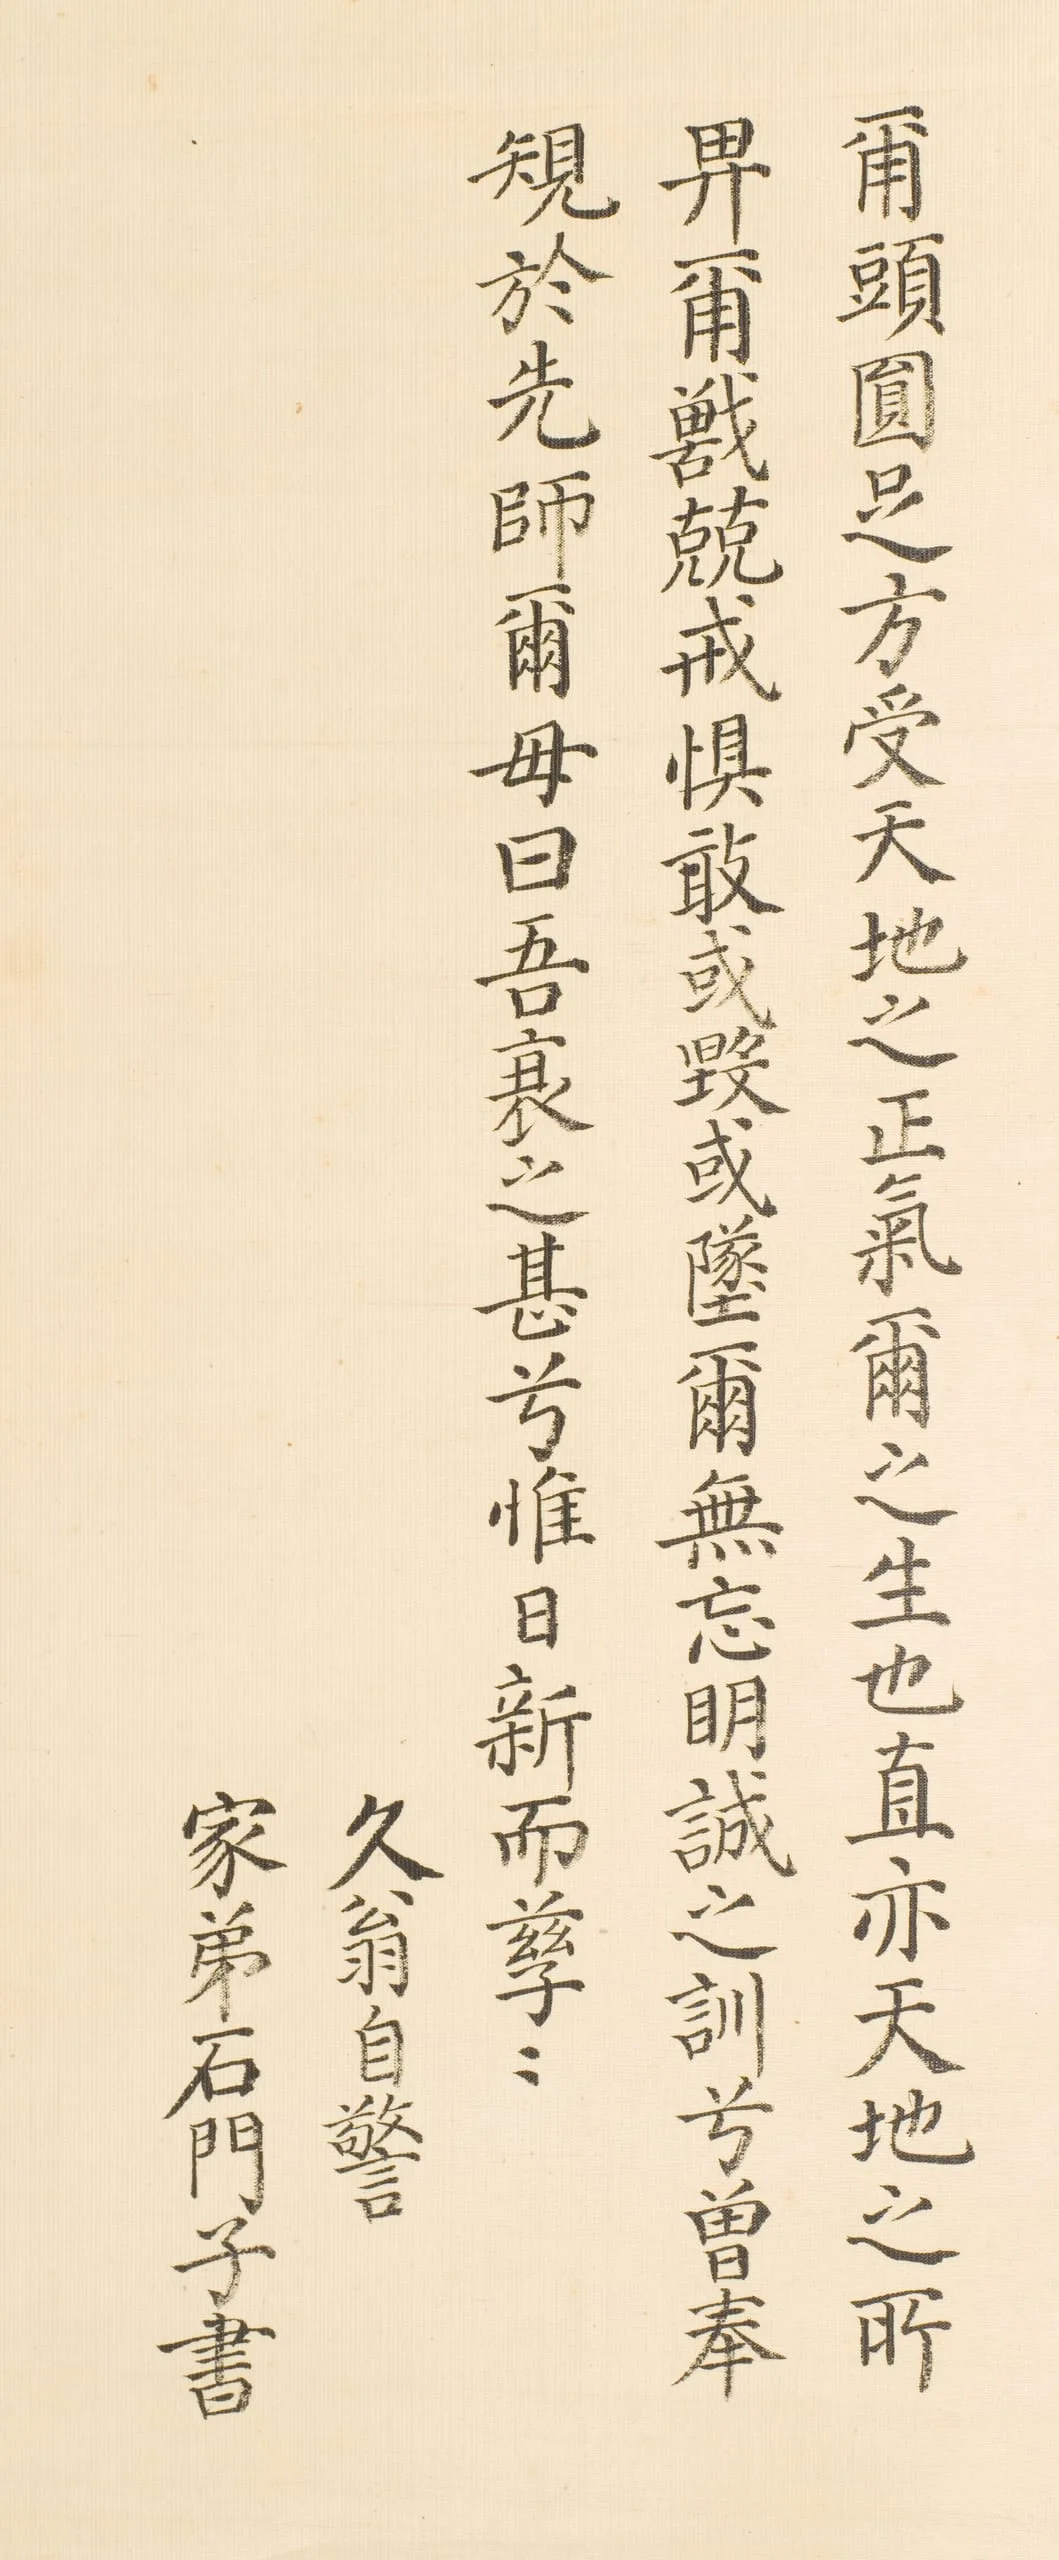 爾頭圓足方受天地之正氣爾之生也直亦天地之所
畀爾戰兢戒惧敢或毀或墜爾無忘明誠之訓兮曾奉
規於先師爾毋曰吾衰之甚兮惟日新而孶〻
久翁自警
家弟石門子書